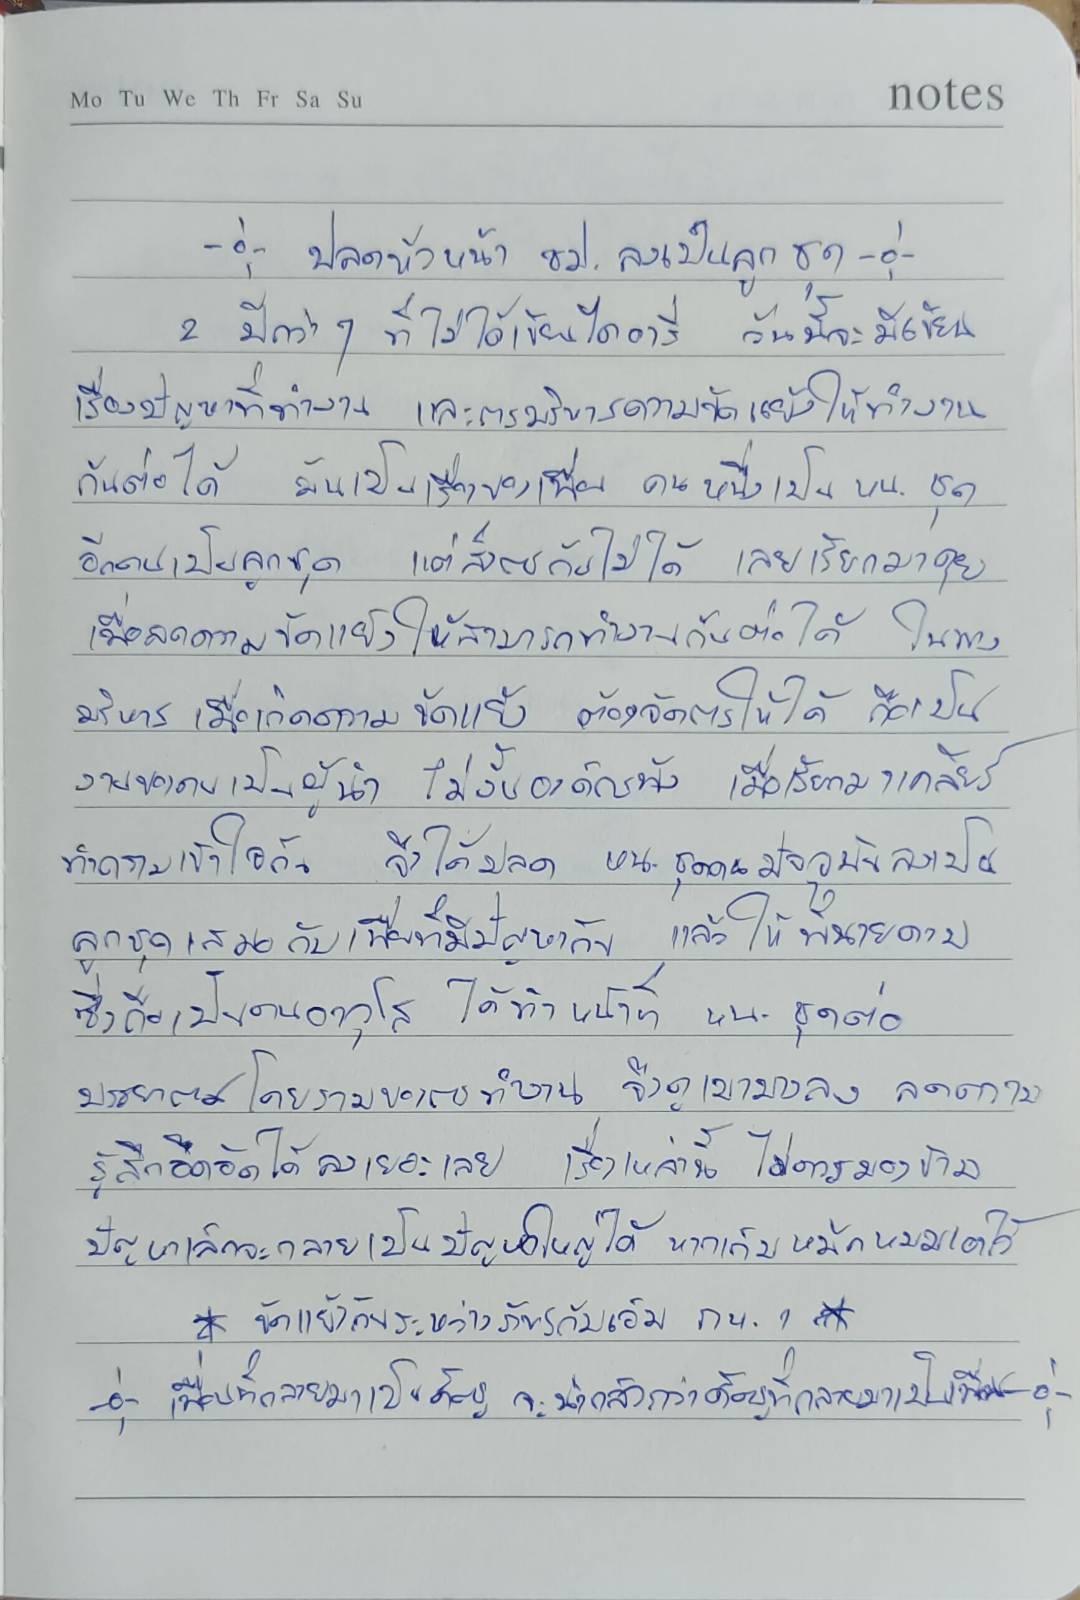 Mo Tu We Th Fr Sa Su
notes
ปลดหัวหน้า ชป. ลงเป็นลูกชุด
2 ปีกว่าๆ ที่ไม่ได้เขียนไดอารี่ วันนี้จะมีเขียน
เรื่องปัญหาที่ทำงาน และการบริหารความขัดแย้งให้ทำงาน
กันต่อได้ มันเป็นเรื่องของเพื่อน คนหนึ่งเป็น หน. ชุด
อีกคนเป็นลูกชุด แต่สั่งการกันไม่ได้ เลยเรียกมาคุย
เพื่อลดความขัดแย้ง ให้สามารถทำงานกันต่อได้ ในทาง
บริหาร เมื่อเกิดความขัดแย้ง ต้องจัดการให้ได้ ถือเป็น
งานของคนเป็นผู้นำ ไม่งั้นองค์กรพัง เมื่อเรียกมาเคลียร์
ทำความเข้าใจกัน จึงได้ปลด หน. ชุดคนปัจจุบันลงเป็น
ลูกชุดเสมอกับเพื่อนที่มีปัญหากัน แล้วให้พี่นายดาบ
ซึ่งถือเป็นคนอาวุโส ได้ทำหน้าที่ หน. ชุดต่อ
บรรยากาศโดยรวมของการทำงาน จึงดูเบาบางลง ลดความ
รู้สึกอึดอัดได้ลงเยอะเลย เรื่องเหล่านี้ ไม่ควรมองข้าม
ปัญหาเล็กจะกลายเป็นปัญหาใหญ่ได้ หากเก็บหมักหมมเอาไว้
* ขัดแย้งกันระหว่าง กับเอ็ม *
เพื่อนที่กลายมาเป็นศัตรู จะน่ากลัวกว่าศัตรูที่กลายมาเป็นเพื่อน